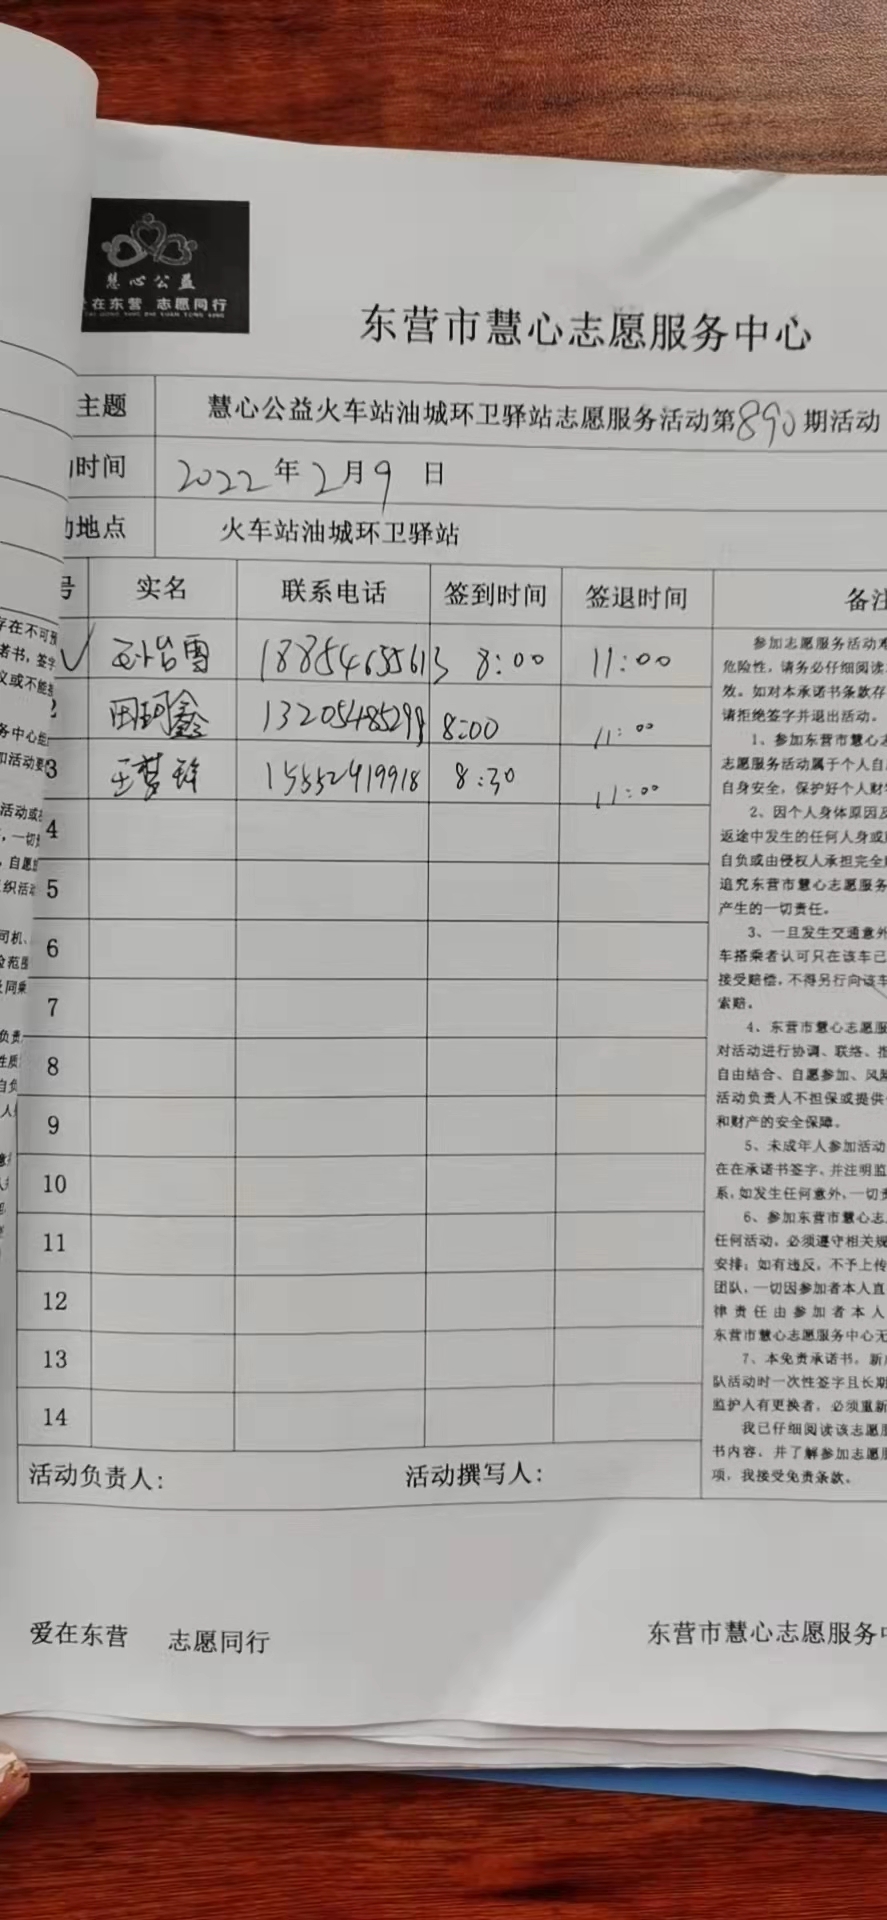 慧心公益
在东营 志愿同行
东营市慧心志愿服务中心
主题 慧心公益火车站油城环卫驿站志愿服务活动第890期活动
时间 2022年2月9日
地点 火车站油城环卫驿站
号 实名 联系电话 签到时间 签退时间 备注
18854655613 8:00 11:00
2 田珂鑫 13205485299 8:00 11:00
3 王梦 15552419918 8:30 11:00
4
5
6
7
8
9
10
11
12
13
14
参加志愿服务活动难
危险性，请务必仔细阅读
效。如对本承诺书条款存
请拒绝签字并退出活动。
1、参加东营市慧心志
志愿服务活动属于个人自
自身安全，保护好个人财
2、因个人身体原因及
返途中发生的任何人身或
自负或由侵权人承担完全
追究东营市慧心志愿服务
产生的一切责任。
3、一旦发生交通意外
车搭乘者认可只在该车已
接受赔偿，不得另行向该车
索赔。
4、东营市慧心志愿服
对活动进行协调、联络、
自由结合、自愿参加、风险
活动负责人不担保或提供
和财产的安全保障。
5、未成年人参加活动
在在承诺书签字、并注明监
系，如发生任何意外，一切责
6、参加东营市慧心志
任何活动，必须遵守相关规
安排；如有违反，不予上传
团队，一切因参加者本人直
律责任由参加者本人
东营市慧心志愿服务中心无
7、本免责承诺书，新
队活动时一次性签字且长期
监护人有更换者，必须重新
我已仔细阅读该志愿服
书内容，并了解参加志愿服
项，我接受免责条款。
活动负责人： 活动撰写人：
爱在东营 志愿同行 东营市慧心志愿服务中